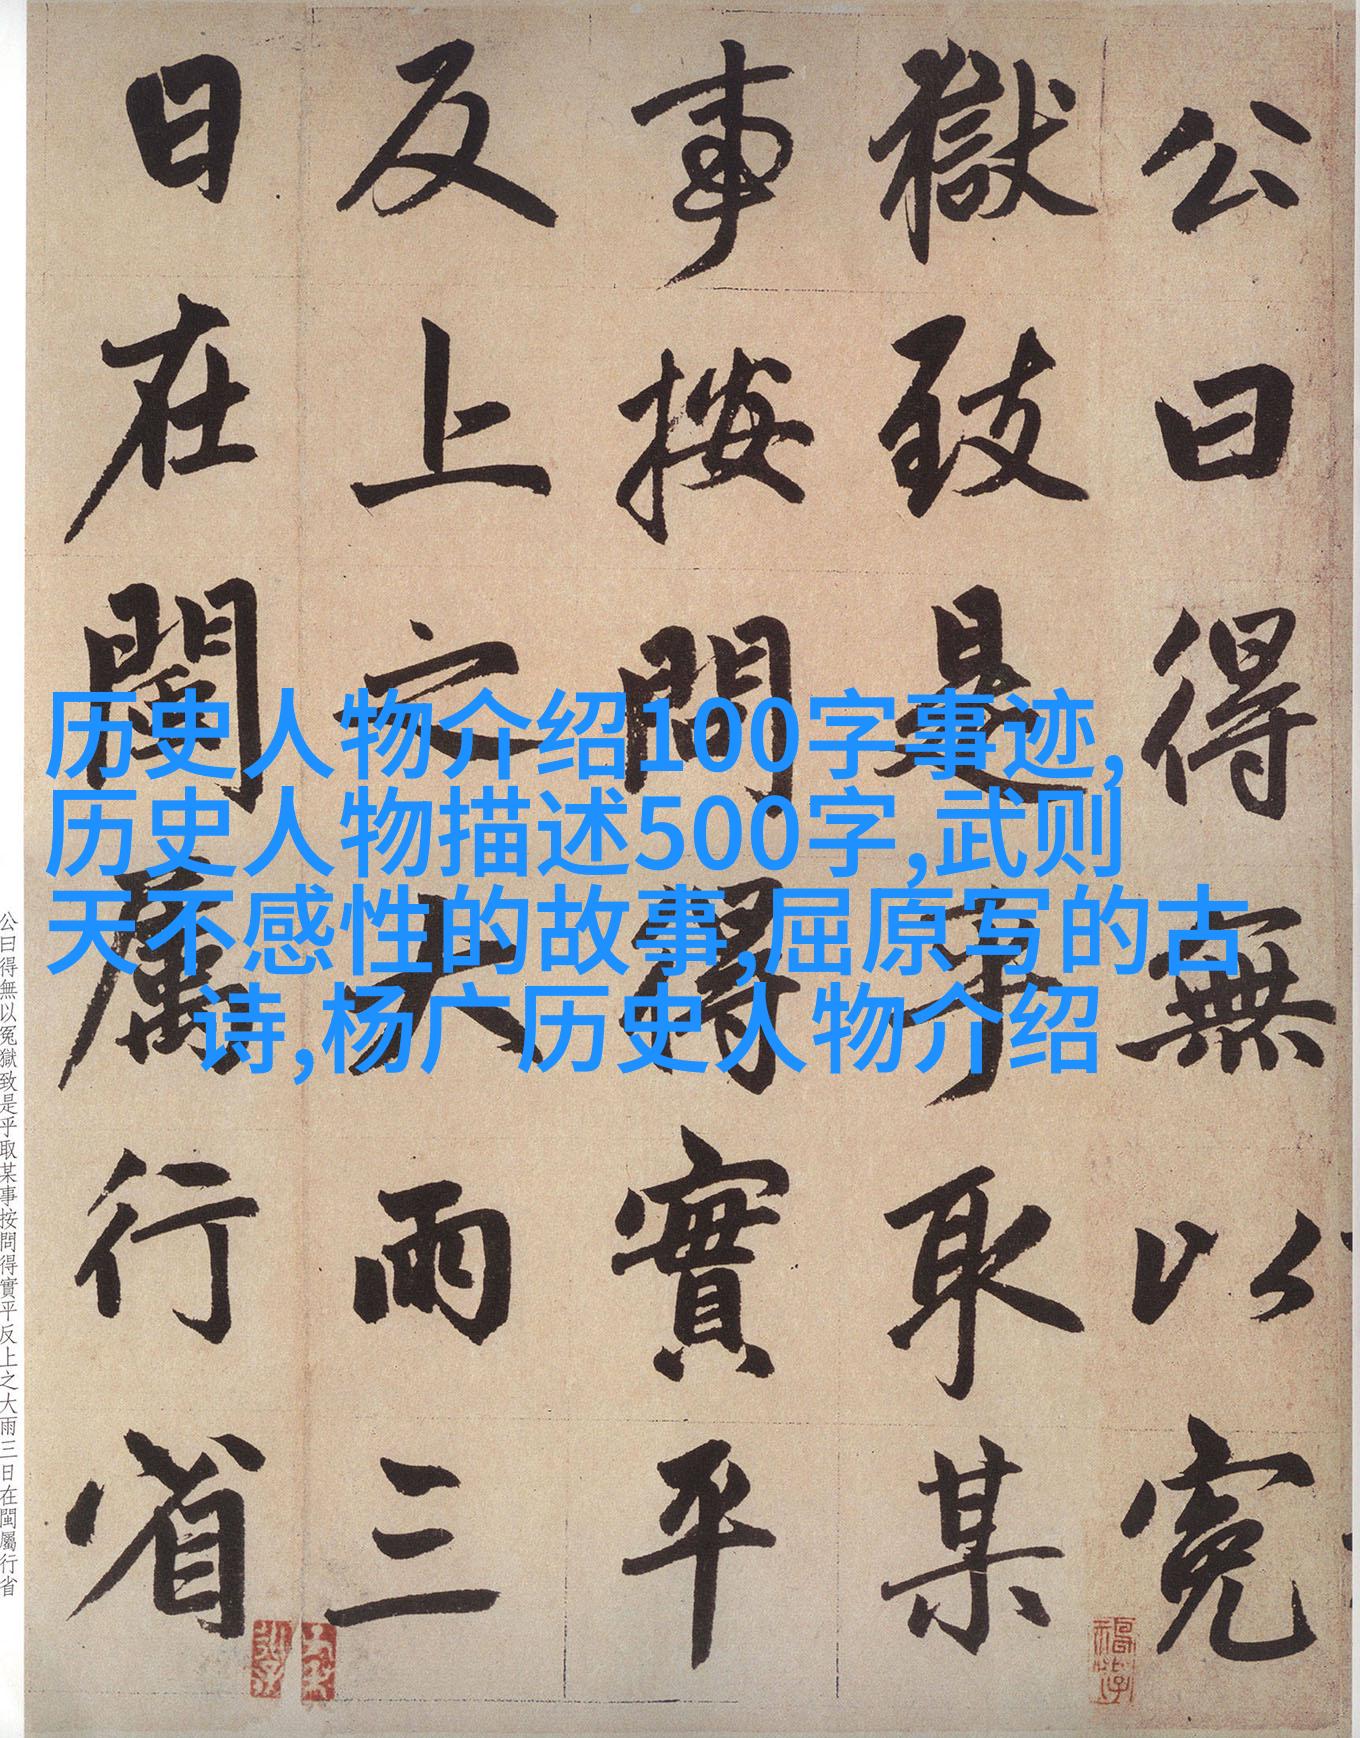 公曰得無以冤
獄致是乎取某
事按問得實平
反上之大雨三
日在閩屬行省
历史人物介绍100字事迹,
历史人物描述500字,武则
天不感性的故事,屈原写的古
诗,杨广历史人物介绍
公曰得無以冤獄致是乎取某事按問得實平反上之大雨三日在閩屬行省